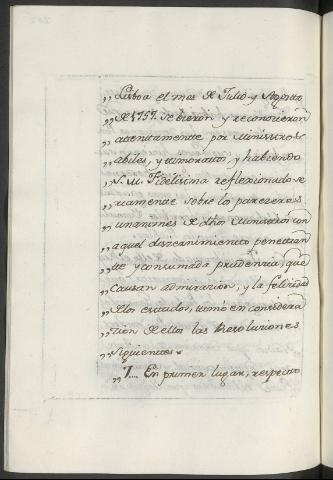 „ Lisboa el mes de Julio y Agosto
„ de 1757. se bieron y reconocieron
„ atentamente por Ministros
„ abiles, y timoratos, y habiendo
„ S. M. Fidelisima reflexionado se
„ riamente sobre lo pareceres
„ unanimes de dhos Ministros con
„ aquel discernimiento penetran
„ te y consumada prudencia, que
„ causan admiracion, y la felicidad
„ de los estados, tomó en considera
„ cion de ellos las Resoluciones
„ siguientes
„ 1.... En primer lugar, respecto